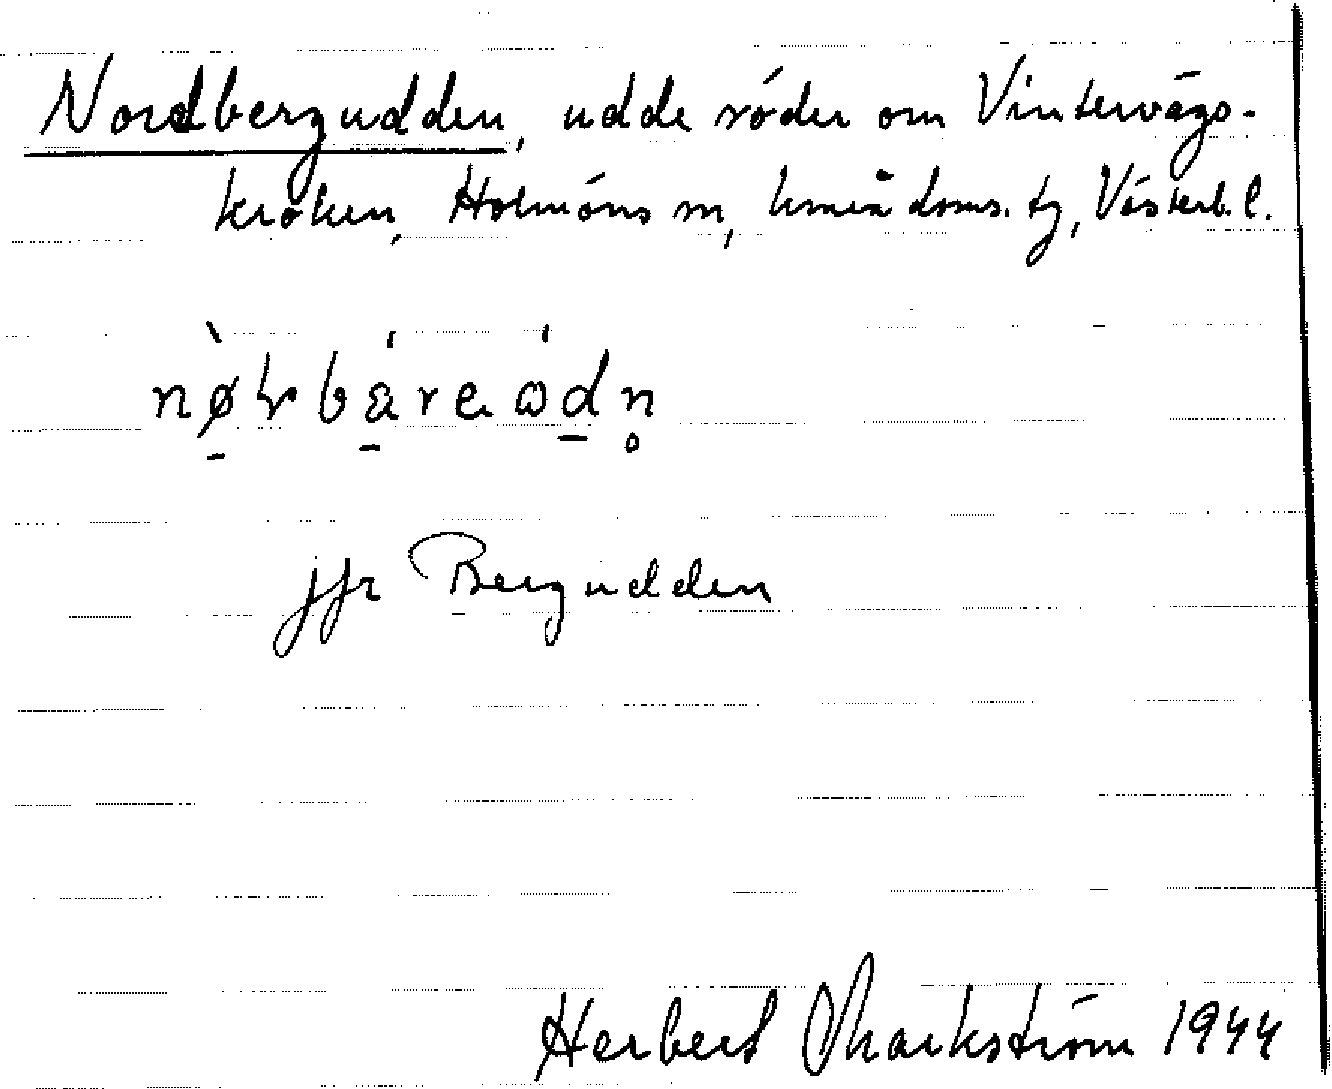 Nordbergudden, udde söder om Vintervägs-
kroken, Holmöns sn, Umeå doms. tg, Västerb. l.
jfr Bergudden
Herbert Markström 1944